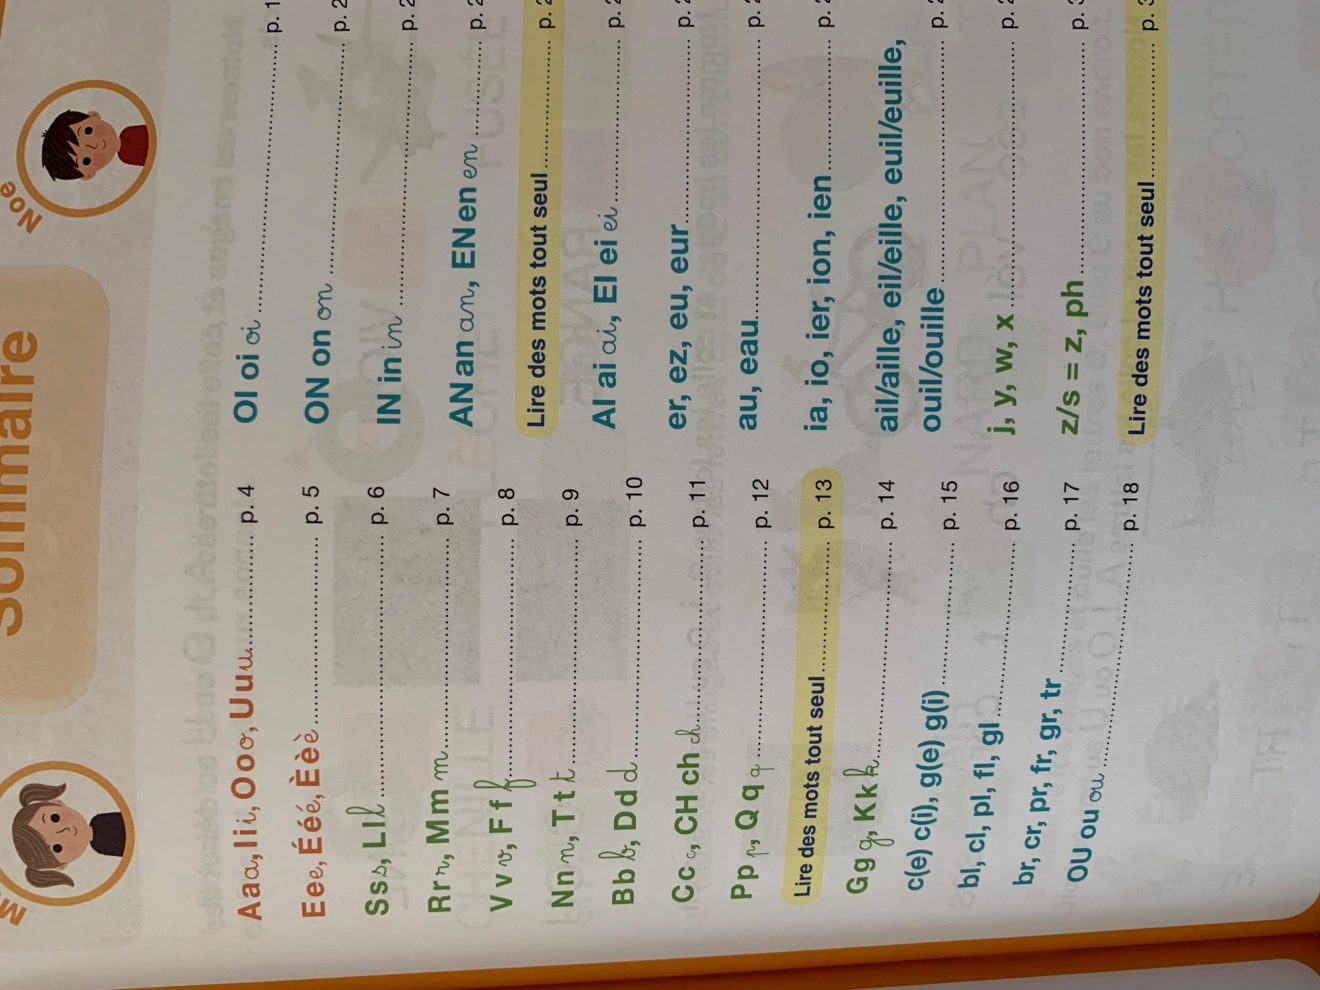 Sommaire
Noé
A a a, I i i, O o o, U u u p. 4
E e e, É é é, È è è p. 5
S s s, L l l p. 6
R r r, M m m p. 7
V v v, F f f p. 8
N n n, T t t p. 9
B b b, D d d p. 10
C c c, CH ch ch p. 11
P p p, Q q q p. 12
Lire des mots tout seul p. 13
G g g, K k k p. 14
c(e) c(i), g(e) g(i) p. 15
bl, cl, pl, fl, gl p. 16
br, cr, pr, fr, gr, tr p. 17
OU ou ou p. 18
OI oi oi p.
ON on on p.
IN in in p.
AN an an, EN en en p.
Lire des mots tout seul p.
AI ai ai, EI ei ei p.
er, ez, eu, eur p.
au, eau p.
ia, io, ier, ion, ien p.
ail/aille, eil/eille, euil/euille,
ouil/ouille p.
j, y, w, x p.
z/s = z, ph p.
Lire des mots tout seul p.